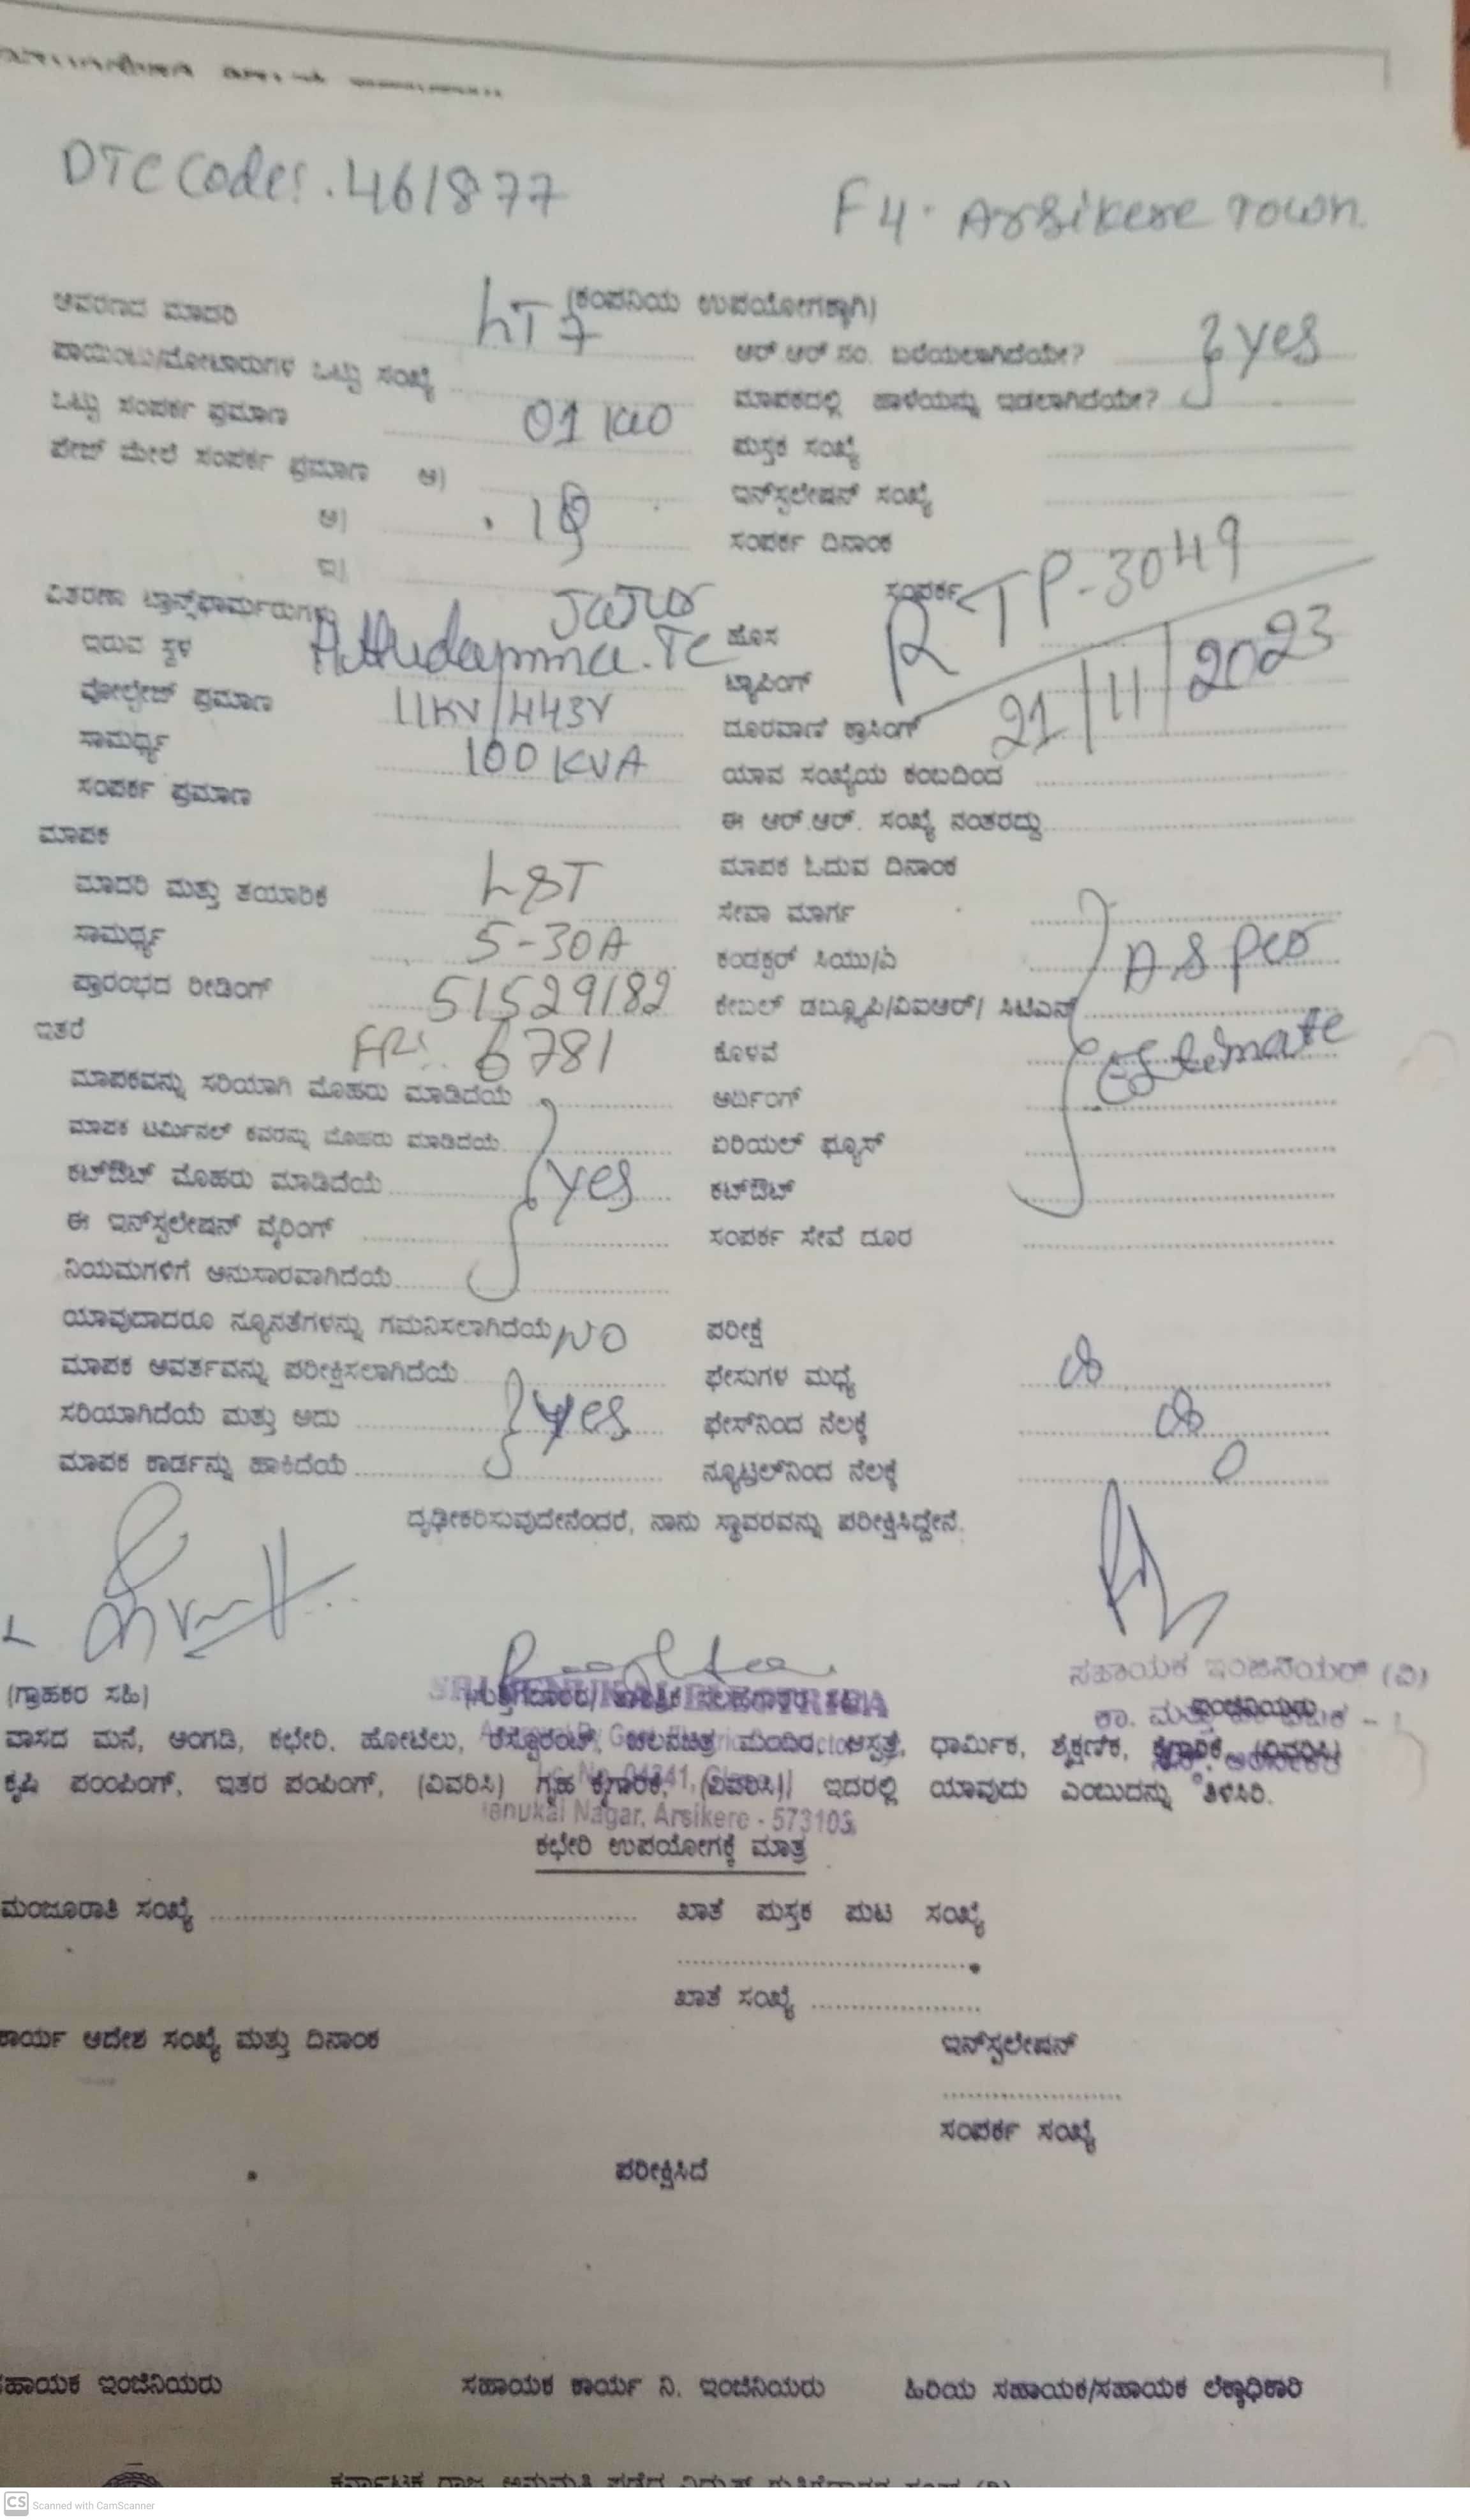 DTC Code: 461877
F4. Arsikere Town
(ಕಂಪನಿಯ ಉಪಯೋಗಕ್ಕಾಗಿ)
ಆವರಣದ ಮಾದರಿ LT 7
ಆರ್.ಆರ್.ನಂ. ಬರೆಯಲಾಗಿದೆಯೇ? } yes
ಪಾಯಿಂಟು/ಮೋಟಾರುಗಳ ಒಟ್ಟು ಸಂಖ್ಯೆ
ಮಾಪಕದಲ್ಲಿ ಹಾಳೆಯನ್ನು ಇಡಲಾಗಿದೆಯೇ?
ಒಟ್ಟು ಸಂಪರ್ಕ ಪ್ರಮಾಣ 01 KW
ಪುಸ್ತಕ ಸಂಖ್ಯೆ
ಪೇಜ್ ಮೇಲೆ ಸಂಪರ್ಕ ಪ್ರಮಾಣ ಅ)
ಇನ್‌ಸ್ಟಲೇಷನ್ ಸಂಖ್ಯೆ
ಆ)
ಸಂಪರ್ಕ ದಿನಾಂಕ
ಇ)
ಸಂಪರ್ಕ TP-3049
ವಿತರಣಾ ಟ್ರಾನ್ಸ್‌ಫಾರ್ಮರುಗಳು
ಇರುವ ಸ್ಥಳ
ಹೊಸ
21/11/2023
ಟ್ಯಾಪಿಂಗ್
ವೋಲ್ಟೇಜ್ ಪ್ರಮಾಣ 11KV/443V
ದೂರವಾಣಿ ಕ್ರಾಸಿಂಗ್
ಸಾಮರ್ಥ್ಯ 100 KVA
ಯಾವ ಸಂಖ್ಯೆಯ ಕಂಬದಿಂದ
ಸಂಪರ್ಕ ಪ್ರಮಾಣ
ಈ ಆರ್.ಆರ್. ಸಂಖ್ಯೆ ನಂತರದ್ದು
ಮಾಪಕ
ಮಾಪಕ ಓದುವ ದಿನಾಂಕ
ಮಾದರಿ ಮತ್ತು ತಯಾರಿಕೆ L&T
ಸೇವಾ ಮಾರ್ಗ
ಸಾಮರ್ಥ್ಯ 5-30A
ಕಂಡಕ್ಟರ್ ಸಿಯು/ಎ
ಪ್ರಾರಂಭದ ರೀಡಿಂಗ್ 51529182
ಕೇಬಲ್ ಡಬ್ಲ್ಯೂಪಿ/ವಿಐಆರ್/ ಸಿಟಿಎನ್ } As per Estimate
ಇತರೆ FR: 6781
ಕೊಳವೆ
ಮಾಪಕವನ್ನು ಸರಿಯಾಗಿ ಮೊಹರು ಮಾಡಿದೆಯೆ
ಅರ್ದಿಂಗ್
ಮಾಪಕ ಟರ್ಮಿನಲ್ ಕವರನ್ನು ಮೊಹರು ಮಾಡಿದೆಯೆ
ಏರಿಯಲ್ ಫ್ಯೂಸ್
ಕಟ್‌ಔಟ್ ಮೊಹರು ಮಾಡಿದೆಯೆ } yes
ಕಟ್‌ಔಟ್
ಈ ಇನ್‌ಸ್ಟಲೇಷನ್ ವೈರಿಂಗ್
ಸಂಪರ್ಕ ಸೇವೆ ದೂರ
ನಿಯಮಗಳಿಗೆ ಅನುಸಾರವಾಗಿದೆಯೆ
ಯಾವುದಾದರೂ ನ್ಯೂನತೆಗಳನ್ನು ಗಮನಿಸಲಾಗಿದೆಯೆ NO
ಪರೀಕ್ಷೆ
ಮಾಪಕ ಆವರ್ತವನ್ನು ಪರೀಕ್ಷಿಸಲಾಗಿದೆಯೆ
ಫೇಸುಗಳ ಮಧ್ಯೆ ∞
ಸರಿಯಾಗಿದೆಯೆ ಮತ್ತು ಅದು } yes
ಫೇಸ್‌ನಿಂದ ನೆಲಕ್ಕೆ ∞
ಮಾಪಕ ಕಾರ್ಡನ್ನು ಹಾಕಿದೆಯೆ
ನ್ಯೂಟ್ರಲ್‌ನಿಂದ ನೆಲಕ್ಕೆ 0
ದೃಢೀಕರಿಸುವುದೇನೆಂದರೆ, ನಾನು ಸ್ಥಾವರವನ್ನು ಪರೀಕ್ಷಿಸಿದ್ದೇನೆ.
ಸಹಾಯಕ ಇಂಜಿನಿಯರ್ (ವಿ)
(ಗ್ರಾಹಕರ ಸಹಿ)
ಇಂಜಿನಿಯರು
ವಾಸದ ಮನೆ, ಅಂಗಡಿ, ಕಛೇರಿ, ಹೋಟೆಲು, ರೆಸ್ಟೊರೆಂಟ್, ಚಲನಚಿತ್ರ ಮಂದಿರ, ಆಸ್ಪತ್ರೆ, ಧಾರ್ಮಿಕ, ಶೈಕ್ಷಣಿಕ, ಕೈಗಾರಿಕೆ, (ವಿವರಿಸಿ)
ಕೃಷಿ ಪಂಂಪಿಂಗ್, ಇತರ ಪಂಪಿಂಗ್, (ವಿವರಿಸಿ) ಗೃಹ ಕೈಗಾರಿಕೆ, (ವಿವರಿಸಿ) ಇದರಲ್ಲಿ ಯಾವುದು ಎಂಬುದನ್ನು ತಿಳಿಸಿರಿ.
Nagar, Arsikere - 573103
ಕಛೇರಿ ಉಪಯೋಗಕ್ಕೆ ಮಾತ್ರ
ಮಂಜೂರಾತಿ ಸಂಖ್ಯೆ
ಖಾತೆ ಪುಸ್ತಕ ಪುಟ ಸಂಖ್ಯೆ
ಖಾತೆ ಸಂಖ್ಯೆ
ಕಾರ್ಯ ಆದೇಶ ಸಂಖ್ಯೆ ಮತ್ತು ದಿನಾಂಕ
ಇನ್‌ಸ್ಟಲೇಷನ್
ಸಂಪರ್ಕ ಸಂಖ್ಯೆ
ಪರೀಕ್ಷಿಸಿದೆ
ಸಹಾಯಕ ಇಂಜಿನಿಯರು
ಸಹಾಯಕ ಕಾರ್ಯ ನಿ. ಇಂಜಿನಿಯರು
ಹಿರಿಯ ಸಹಾಯಕ/ಸಹಾಯಕ ಲೆಕ್ಕಾಧಿಕಾರಿ
CS Scanned with CamScanner